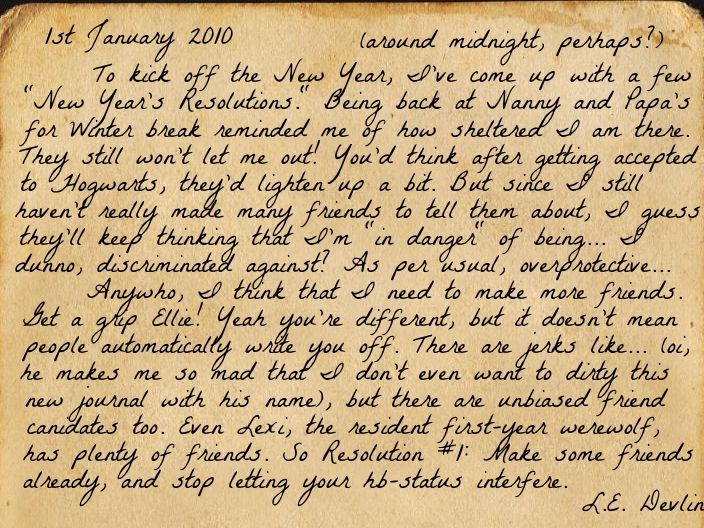 1st January 2010 (around midnight, perhaps?)
To kick off the New Year, I've come up with a few
"New Year's Resolutions." Being back at Nanny and Papa's
for Winter break reminded me of how sheltered I am there.
They still won't let me out! You'd think after getting accepted
to Hogwarts, they'd lighten up a bit. But since I still
haven't really made many friends to tell them about, I guess
they'll keep thinking that I'm "in danger" of being... I
dunno, discriminated against? As per usual, overprotective...
Anywho, I think that I need to make more friends.
Get a grip Ellie! Yeah you're different, but it doesn't mean
people automatically write you off. There are jerks like... (oi,
he makes me so mad that I don't even want to dirty this
new journal with his name), but there are unbiased friend
canidates too. Even Lexi, the resident first-year werewolf,
has plenty of friends. So Resolution #1: Make some friends
already, and stop letting your hb-status interfere.
L.E. Devlin